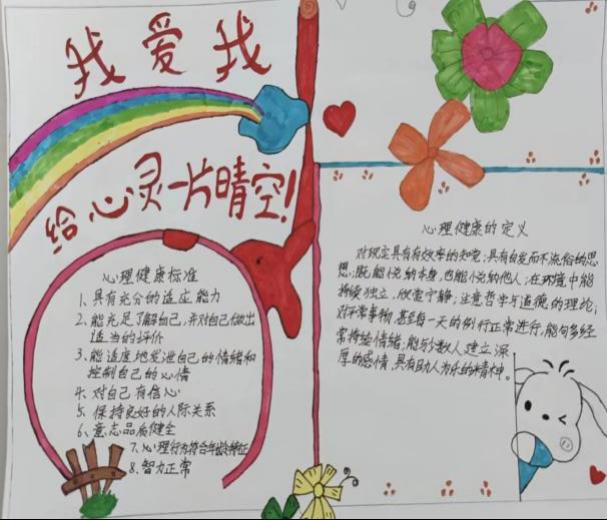 我爱我
给心灵一片晴空!
心理健康标准
1、具有充分的适应能力
2、能充足了解自己,并对自己做出
适当的评价
3、能适度地发泄自己的情绪和
控制自己的心情
4、对自己有信心
5、保持良好的人际关系
6、意志品质健全
7、心理行为符合年龄特征
8、智力正常
心理健康的定义
对现实具有有效率的知觉;具有自发而不流俗的思
想;既能悦纳本身,也能悦纳他人;在环境中能
持续独立,欣赏宁静;注意哲学与道德的理论;
对平常事物,甚至每一天的例行正常进行,能向多经
常持续情绪;能与少数人建立深
厚的感情,具有助人为乐的精神。